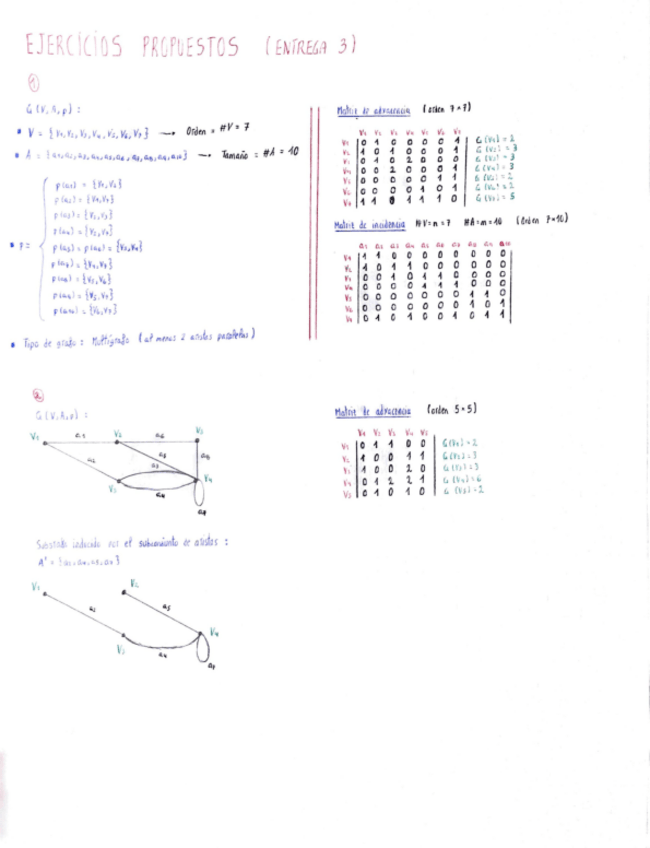 EJERCICIOS PROPUESTOS (ENTREGA 3)
①
G (V, A, p) :
• V = {V₁, V₂, V₃, V₄, V₅, V₆, V₇} → Orden = #V = 7
• A = {a₁, a₂, a₃, a₄, a₅, a₆, a₇, a₈, a₉, a₁₀} → Tamaño = #A = 10
• p =
p(a₁) = {V₁, V₂}
p(a₂) = {V₁, V₇}
p(a₃) = {V₂, V₃}
p(a₄) = {V₂, V₇}
p(a₅) = p(a₆) = {V₃, V₄}
p(a₇) = {V₄, V₇}
p(a₈) = {V₅, V₆}
p(a₉) = {V₅, V₇}
p(a₁₀) = {V₆, V₇}
• Tipo de grafo : Multigrafo (al menos 2 aristas paralelas)
Matriz de adyacencia (orden 7×7)
V₁ V₂ V₃ V₄ V₅ V₆ V₇
V₁ 0 1 0 0 0 0 1 G (V₁) = 2
V₂ 1 0 1 0 0 0 1 G (V₂) = 3
V₃ 0 1 0 2 0 0 0 G (V₃) = 3
V₄ 0 0 2 0 0 0 1 G (V₄) = 3
V₅ 0 0 0 0 0 1 1 G (V₅) = 2
V₆ 0 0 0 0 1 0 1 G (V₆) = 2
V₇ 1 1 0 1 1 1 0 G (V₇) = 5
Matriz de incidencia #V=n=7 #A=m=10 (Orden 7×10)
a₁ a₂ a₃ a₄ a₅ a₆ a₇ a₈ a₉ a₁₀
V₁ 1 1 0 0 0 0 0 0 0 0
V₂ 1 0 1 1 0 0 0 0 0 0
V₃ 0 0 1 0 1 1 0 0 0 0
V₄ 0 0 0 0 1 1 1 0 0 0
V₅ 0 0 0 0 0 0 0 1 1 0
V₆ 0 0 0 0 0 0 0 1 0 1
V₇ 0 1 0 1 0 0 1 0 1 1
②
G (V, A, p) :
V₁ a₁ V₂ a₆ V₅
a₂ a₅ a₈
a₃
V₃ a₄ V₄
Subgrafo inducido por el subconjunto de aristas :
V₁ V₂
a₂ a₅
V₃ a₄ V₄
a₇
Matriz de adyacencia (orden 5×5)
V₁ V₂ V₃ V₄ V₅
V₁ 0 1 1 0 0 G(V₁) = 2
V₂ 1 0 0 1 1 G(V₂) = 3
V₃ 1 0 0 2 0 G (V₃) = 3
V₄ 0 1 2 2 1 G (V₄) = 6
V₅ 0 1 0 1 0 G (V₅) = 2